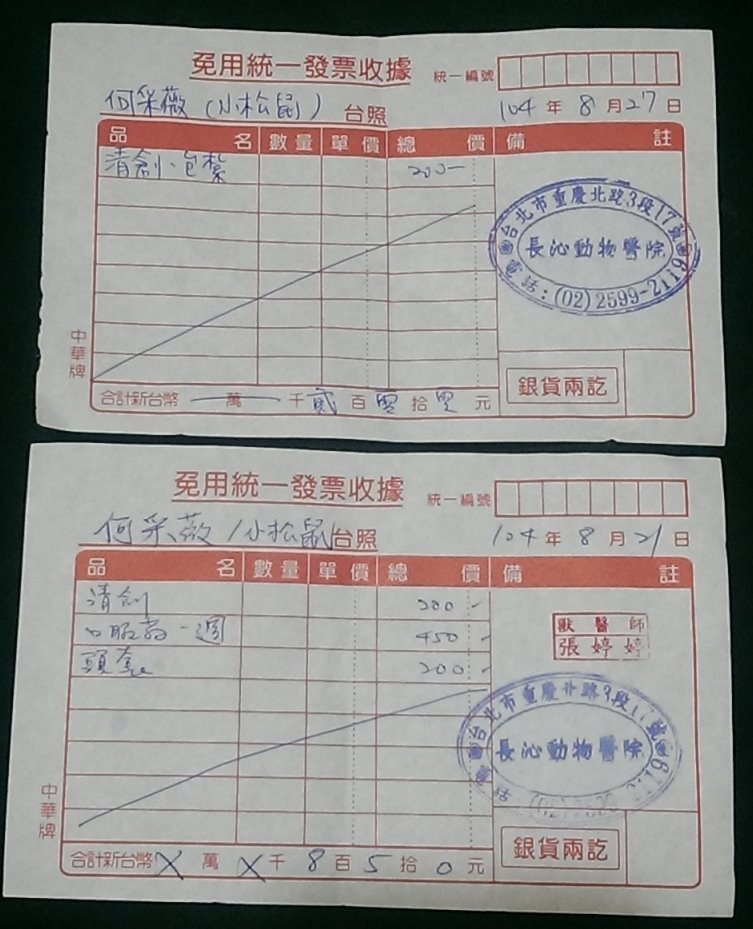 免用統一發票收據
統一編號
何采薇(小松鼠) 台照
104年8月27日
品名 數量 單價 總價 備註
清創、包紮 200-
台北市重慶北路3段17號
長沁動物醫院
電話:(02)2599-2119
中華牌
合計新台幣 一萬一千貳百零拾零元
銀貨兩訖
免用統一發票收據
統一編號
何采薇/小松鼠 台照
104年8月21日
品名 數量 單價 總價 備註
清創 200-
口服葯一週 450-
頭套 200-
獸醫師
張婷婷
台北市重慶北路3段17號
長沁動物醫院
中華牌
合計新台幣X萬X千8百5拾0元
銀貨兩訖